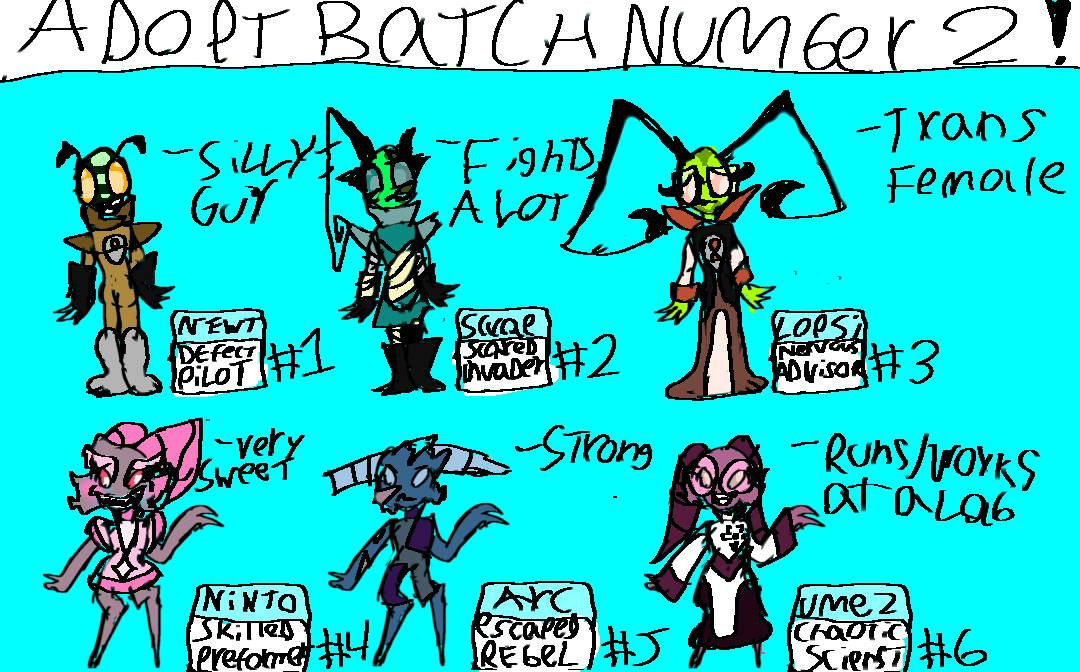 ADOPT BATCH NUMBer 2!
-SILLY
GUY
-Fights
A LOT
-Trans
Female
NEWT
DEFECT
PILOT
#1
Scrap
Scared
invader
#2
LOPSi
Nervous
ADVISOR
#3
-very
sweet
-Strong
-Runs/Works
at a Lab
NiNTO
SKilled
Preformer
#4
Arc
escaped
REBEL
#5
UMe2
Chaotic
Scienst
#6